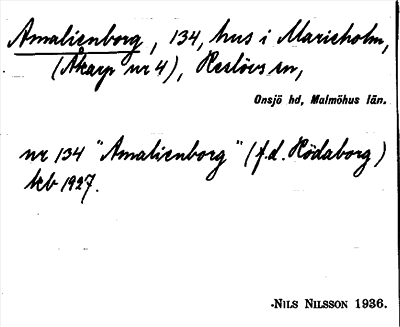 Amalienborg, 134, hus i Marieholm,
(Åkarp nr 4), Reslövs sn,
Onsjö hd, Malmöhus län.
nr 134 "Amalienborg" (f.d. Rödaborg)
kb 1927.
NILS NILSSON 1936.